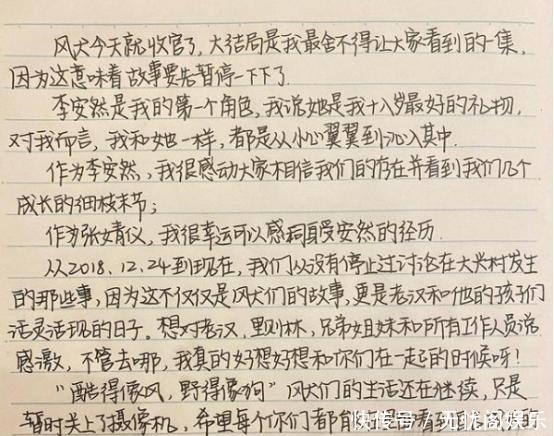 风犬今天就收官了,大结局是我最舍不得让大家看到的一集,
因为这意味着故事要先暂停一下下了.
李安然是我的第一个角色,我说她是我十八岁最好的礼物,
对我而言,我和她一样,都是从小心翼翼到沁入其中.
作为李安然,我很感动大家相信我们的存在并看到我们几个
成长的细枝末节;
作为张婧仪,我很幸运可以感同身受安然的经历.
从2018.12.24到现在,我们从没有停止过讨论在大兴村发生
的那些事,因为这不仅仅是风犬们的故事,更是老汉和他的孩子们
活灵活现的日子。想对老汉,里则林,兄弟姐妹和所有工作人员说
感激,不管去哪,我真的好想好想和你们在一起的时候呀!
“酷得像风,野得像狗”风犬们的生活还在继续,只是
暂时关上了摄像机,希望每个你们都能
快传号/无忧阁娱乐